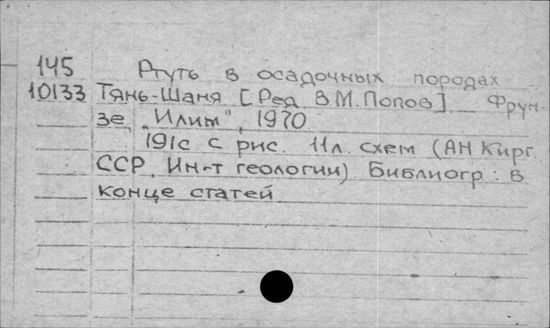 145 Ртуть в осадочных породах
10133 Тянь-Шаня [Ред В.М.Попов] Фрун-
зе, "Илим", 1970
191с с рис. 11л. схем (АН Кирг
ССР, Ин-т геологии) Библиогр: в
конце статей